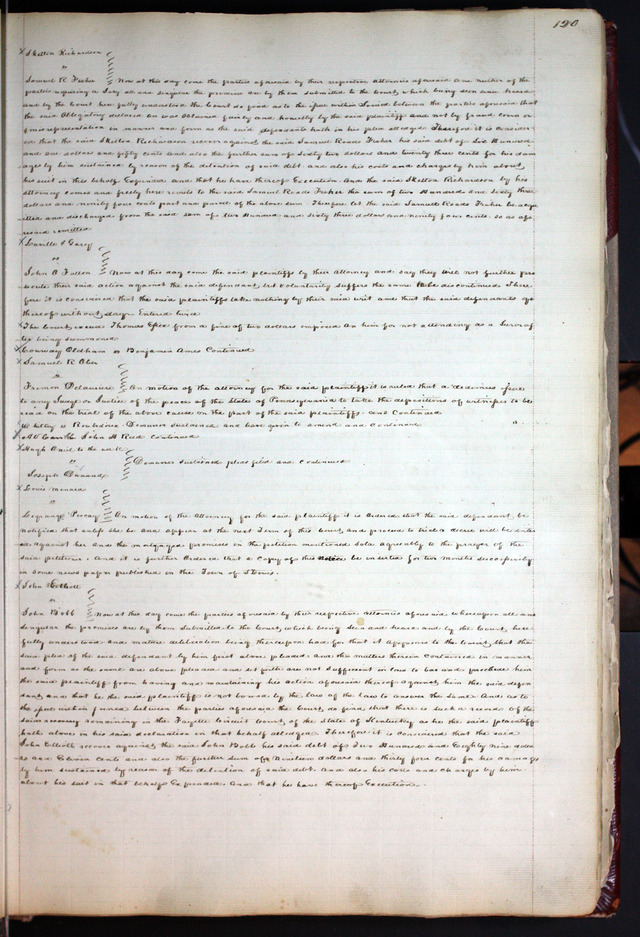 120
X Skelton Richardson
vs
Samuel R Fisher Now at this day come the parties aforesaid by their respective attornies aforesaid and neither of the
parties requiring a Jury all and singular the premises are by them submitted to the Court, which being seen and heard
and by the Court here fully understood the Court do find as to the issue within Joined between the parties aforesaid that
the said obligatory declared on was obtained fairly and honestly by the said plaintiff and not by fraud covin or
misrepresentation in manner and form as the said defendant hath in his plea alledged Therefore it is consider
ed that the said Skelton Richardson recover against the said Samuel Roads Fisher his said debt of Six Hundred
and one dollars and fifty cents and also the further sum of Sixty two dollars and twenty three cents for his dam
ages by him sustained by reason of the detention of said debt and also his costs and charges by him about
his suit in this behalf Expended and that he have thereof Execution And the said Skelton Richardson by his
attorney comes and freely here remits to the said Samuel Roads Fisher the sum of two Hundred and Sixty three
dollars and ninety four cents part and parcel of the above sum Therefore let the said Samuel Roads Fisher be acqu
itted and discharged from the said sum of two Hundred and sixty three dollars and ninety four cents so as afo
resaid remitted
X Laveille & Garey
vs
John O Fallon Now at this day come the said plaintiffs by their attorney and say they will not further pro
secute their said action against the said defendant, but voluntarily suffers the same to be discontinued There
fore it is considered that the said plaintiffs take nothing by their said writ and that the said defendants go
thereof without day Entered twice
X The Court excused Thomas from a fine of two dollars imposed on him for not attending as a Juror af
ter being summoned
X Conway Oldham vs Benjamin Ames Continued
X Samuel R Ober
vs
Fremon Delauriere On motion of the attorney for the said plaintiff it is ruled that a dedimus issue
to any Judge or Justice of the peace of the State of Pennsylvania to take the depositions of witnesses to be
read on the trial of the above cause on the part of the said plaintiffs and Continued
vs Demurrer sustained and leave given to amend and continued
John H Reed continued
X Hugh to the use
vs Demurrer sustained pleas filed and continued
Joseph
X Louis Menard
vs
On motion of the Attorney for the said plaintiff it is ordered that the said defendant, be
notified that unless she be and appear at the next Term of this Court, and proceed to trial a decree will be enter
ed against her and the mortgaged premises in the petition mentioned sold agreeably to the prayer of the
said petitioner. And it is further ordered that a Copy of this notice be inserted for two months successively
in some news paper published in the Town of St Louis.
X John Elliott
vs
John Bobb Now at this day come the parties aforesaid by their respective attornies aforesaid whereupon all and
singular the premises are by them submitted to the Court, which being seen and heard and by the Court, here
fully understood and mature deliberation being thereupon had for that it appears to the Court, that the
said plea of the said defendant by him first above pleaded and the matters therein contained in manner
and form as the same are above pleaded and set forth are not sufficient in law to bar and preclude him
the said plaintiff from having and maintaining his action aforesaid thereof against him the said defen
dant, and that he the said plaintiff is not bound by the law of the land to answer the same And as to
the issue within Joined between the parties aforesaid the Court, do find that there is such a record of the
said recovery remaining in the Fayette Circuit Court, of the State of Kentucky as he the said plaintiff
hath above in his said declaration in that behalf alledged Therefore it is considered that the said
John Elliott recover against the said John Bobb his said debt of Two Hundred and Eighty nine dolla
rs and Eleven Cents and also the further Sum of Nineteen dollars and thirty four cents for his damage
by him sustained by reason of the detention of said debt. And also his costs and charges by him
about his suit in that behalf Expended. And that he have thereof Execution